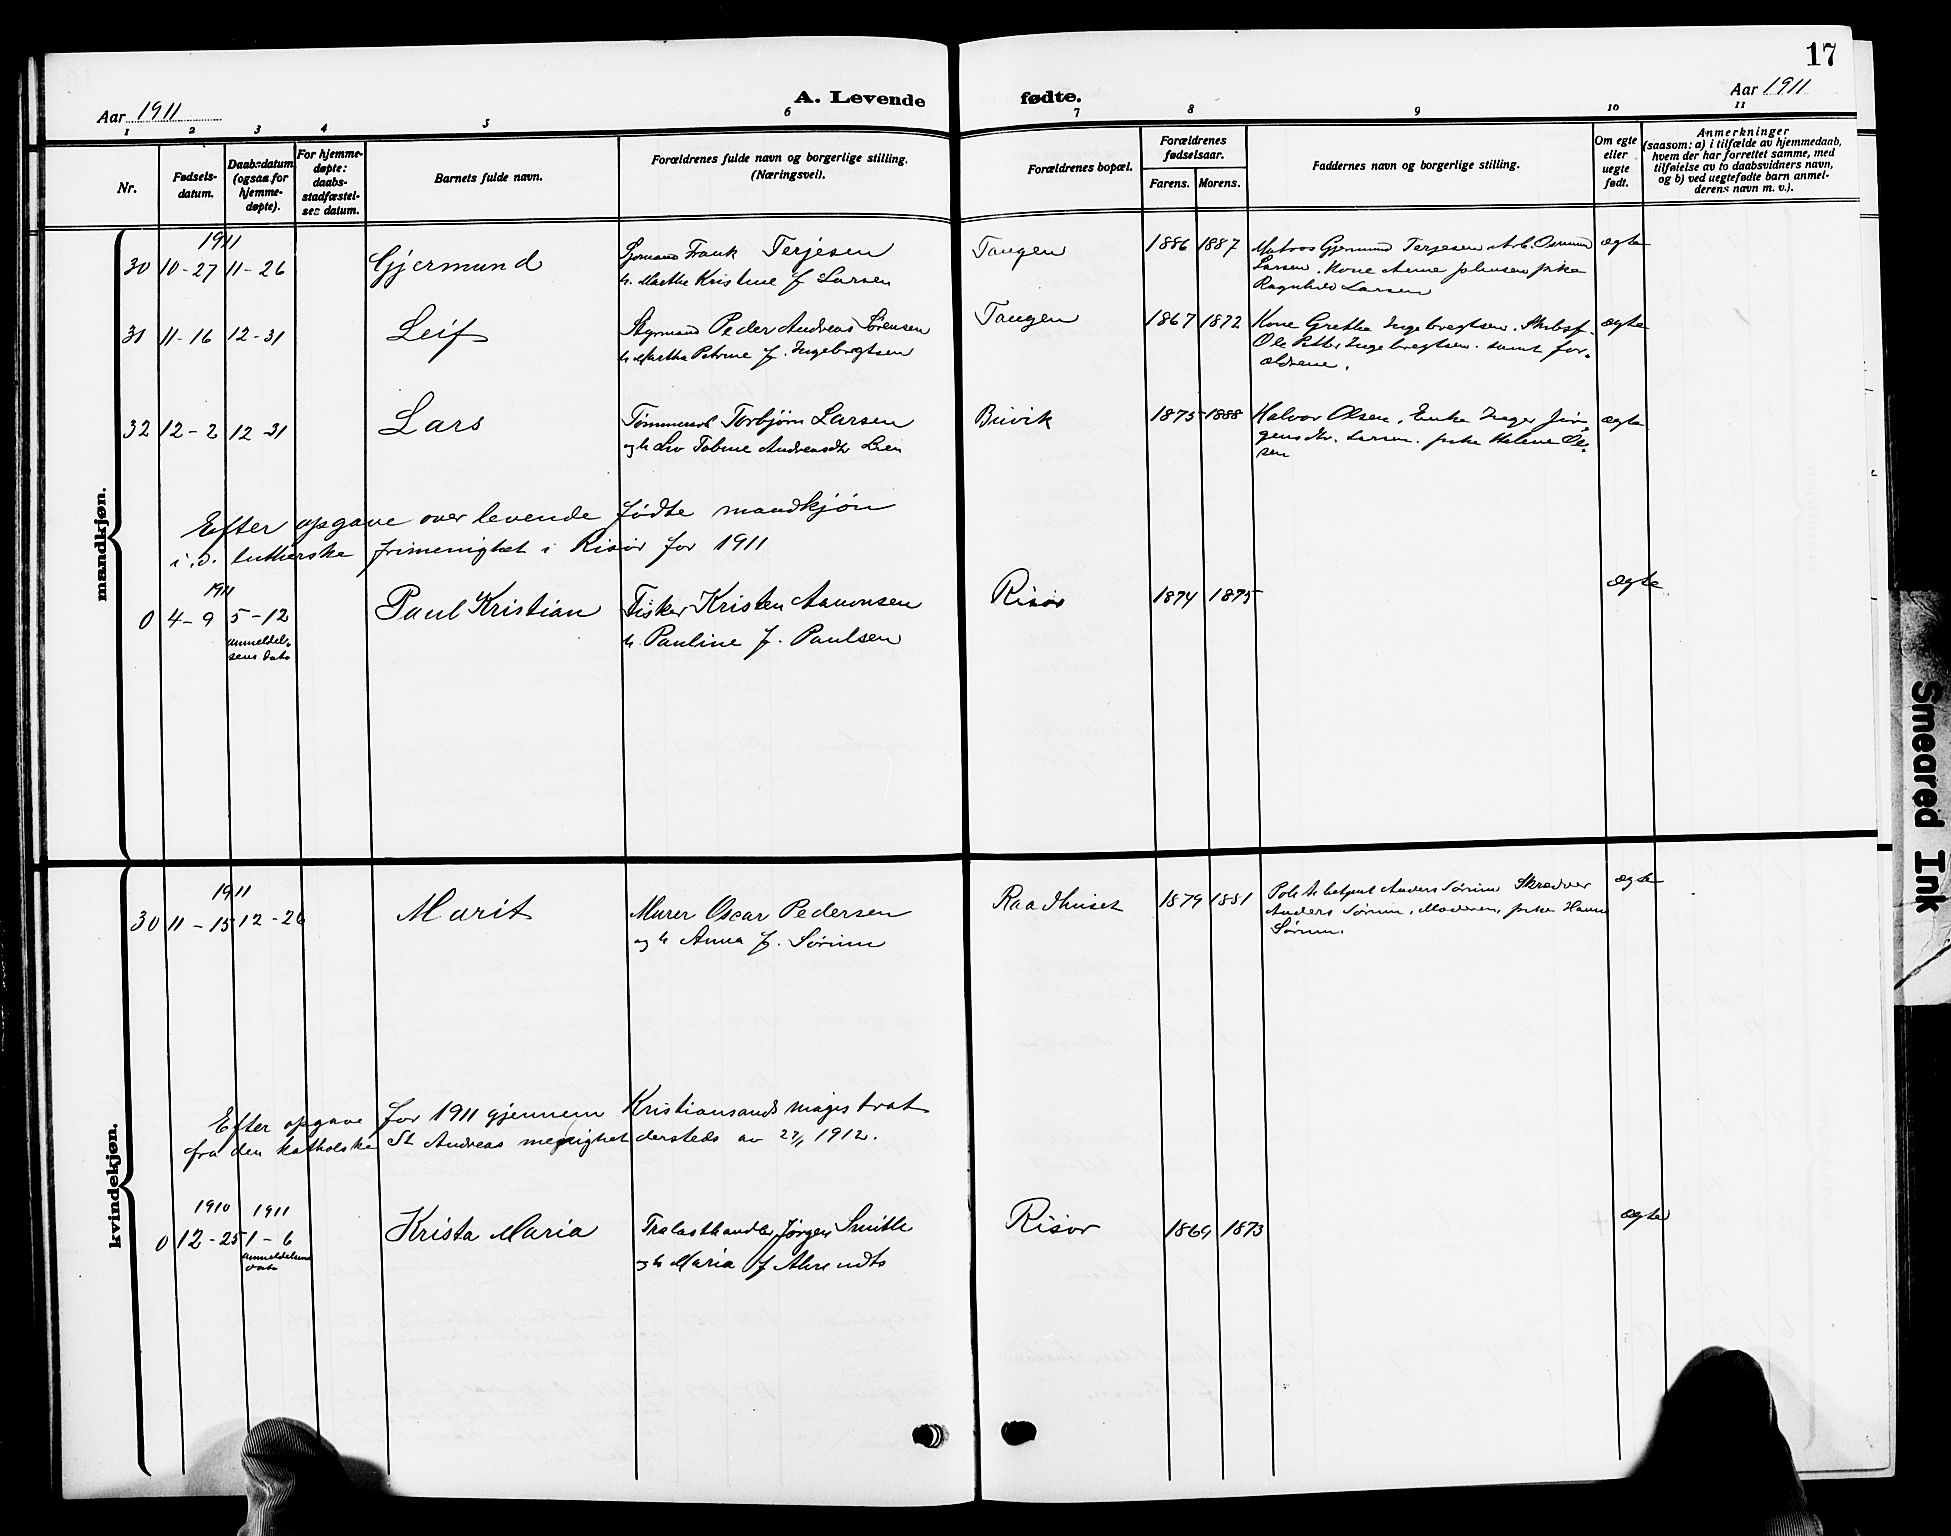 17
Aar 1911
A. Levende fødte.
Aar 1911
1 2 3 4 5 6 7 8 9 10 11
Nr.
Fødsels-
datum.
Daabsdatum
(ogsaa for
hjemme-
døpte).
For hjemme-
døpte:
daabs-
stadfæstel-
ses datum.
Barnets fulde navn.
Forældrenes fulde navn og borgerlige stilling.
(Næringsvei).
Forældrenes bopæl.
Forældrenes
fødselsaar.
Farens. Morens.
Faddernes navn og borgerlige stilling.
Om egte
eller
uegte
født.
Anmerkninger
(saasom: a) i tilfælde av hjemmedaab,
hvem der har forrettet samme, med
tilføielse av to daabsvidners navn,
og b) ved uegtefødte barn anmel-
derens navn m. v.).
mandkjøn.
1911
30 10-27 11-26 Gjermund
Sjømand Frank Terjesen
h. Marthe Kristine f Larsen
Tangen 1886 1887
Matros Gjermund Terjesen Arb. Osmund
Larsen, Kone Anne Johnsen pike
Ragnhild Larsen
ægte
31 11-16 12-31 Leif
Styrmand Peder Andreas Sørensen
h. Martha Petrine f. Ingebregtsen
Tangen 1867 1872
Kone Grethe Ingebregtsen. Skibsf.
Ole Petter Ingebregtsen. samt for-
ældrene.
ægte
32 12-2 12-31 Lars
Tømmerm Torbjørn Larsen
og h Liv Tobine Andreasdtr Lien
Buvik 1875 1888
Halvor Olsen, Enke Inger Jør-
gensdtr. Larsen. pike Helene Ol-
sen
ægte
Efter opgave over levende fødte mandkjøn
i. d. lutherske frimenighet i Risør for 1911
1911
0 4-9 5-12 Paul Kristian
anmeldel-
sens dato
Fisker Kristen Aamonsen
h. Pauline f. Paulsen
Risør 1874 1875
ægte
kvindekjøn.
1911
30 11-15 12-26 Marit
Murer Oscar Pedersen
og h Anna f. Sørum
Raadhuset 1879 1881
Anders Sørum Skrædder
Anders Sørum, Moderen, pike Hanna
Sørum.
ægte
Efter opgave for 1911 gjennem Kristiansands magistrat
fra den katholske St Andreas menighet dersteds av 27/1 1912.
1910 1911
0 12-25 1-6 Krista Maria
anmeldelsens
dato
Trælasthandler Jørgen Smith
og h Maria f Ahrendts
Risør 1869 1873
ægte
Smeared Ink